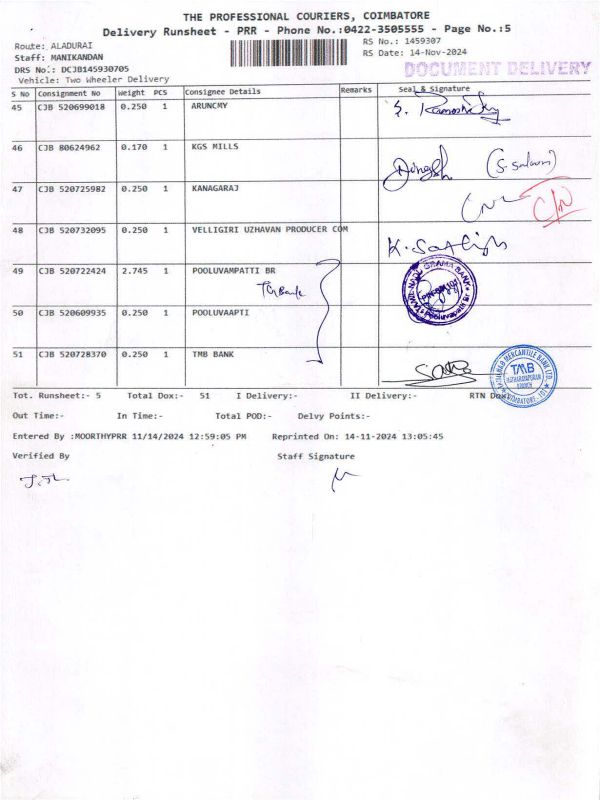 THE PROFESSIONAL COURIERS, COIMBATORE
Delivery Runsheet - PRR - Phone No.:0422-3505555 - Page No.:5
Route: ALADURAI
RS No.: 1459307
Staff: MANIKANDAN
RS Date: 14-Nov-2024
DRS No.: DCJB145930705
DOCUMENT DELIVERY
Vehicle: Two Wheeler Delivery
S No Consignment No Weight PCS Consignee Details Remarks Seal & Signature
45 CJB 520699018 0.250 1 ARUNCMY
46 CJB 80624962 0.170 1 KGS MILLS
47 CJB 520725982 0.250 1 KANAGARAJ
48 CJB 520732095 0.250 1 VELLIGIRI UZHAVAN PRODUCER COM
K. Sathish
49 CJB 520722424 2.745 1 POOLUVAMPATTI BR
50 CJB 520609935 0.250 1 POOLUVAAPTI
51 CJB 520728370 0.250 1 TMB BANK
TMB
Tot. Runsheet:- 5 Total Dox:- 51 I Delivery:- II Delivery:- RTN Dox
Out Time:- In Time:- Total POD:- Delvy Points:-
Entered By :MOORTHYPRR 11/14/2024 12:59:05 PM Reprinted On: 14-11-2024 13:05:45
Verified By Staff Signature